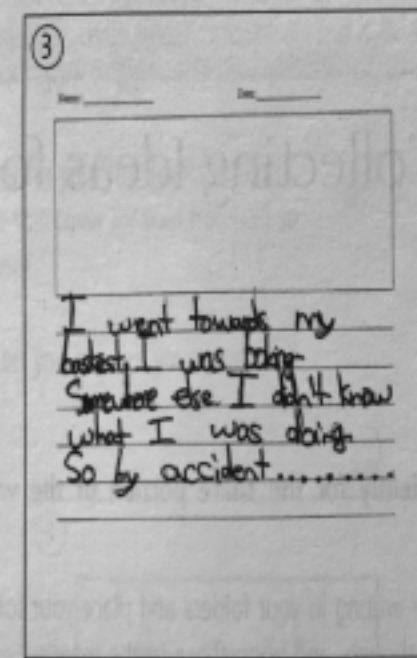 3
Name: Date:
I went towards my
baskest, I was looking
Somewhere else I didn't know
what I was doing.
So by accident..........